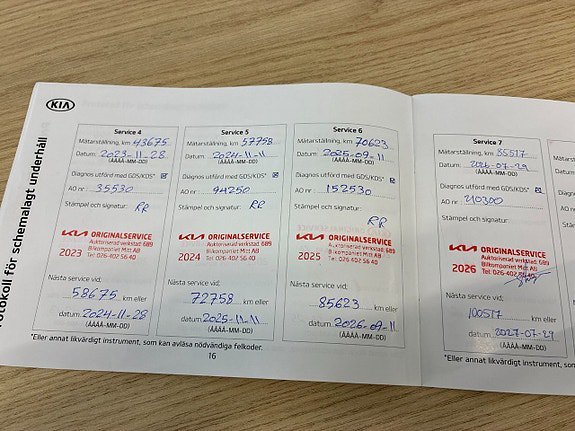 KIA
Protokoll för schemalagt underhåll
Service 4
Mätarställning, km 43675
Datum: 2023-11-28
(ÅÅÅÅ-MM-DD)
Diagnos utförd med GDS/KDS*
AO nr: 35530
Stämpel och signatur: RR
KIA ORIGINALSERVICE
2023
Auktoriserad verkstad: 689
Bilkompaniet Mitt AB
Tel: 026-402 56 40
Nästa service vid:
58675 km eller
datum 2024-11-28
(ÅÅÅÅ-MM-DD)
Service 5
Mätarställning, km 57758
Datum: 2024-11-11
(ÅÅÅÅ-MM-DD)
Diagnos utförd med GDS/KDS*
AO nr: 94250
Stämpel och signatur: RR
KIA ORIGINALSERVICE
2024
Auktoriserad verkstad: 689
Bilkompaniet Mitt AB
Tel: 026-402 56 40
Nästa service vid:
72758 km eller
datum 2025-11-11
(ÅÅÅÅ-MM-DD)
Service 6
Mätarställning, km 70623
Datum: 2025-09-11
(ÅÅÅÅ-MM-DD)
Diagnos utförd med GDS/KDS*
AO nr: 152530
Stämpel och signatur:
RR
KIA ORIGINALSERVICE
2025
Auktoriserad verkstad: 689
Bilkompaniet Mitt AB
Tel: 026-402 56 40
Nästa service vid:
85623 km eller
datum: 2026-09-11
(ÅÅÅÅ-MM-DD)
*Eller annat likvärdigt instrument, som kan avläsa nödvändiga felkoder.
16
Service 7
Mätarställning, km 85517
Datum: 2026-07-29
(ÅÅÅÅ-MM-DD)
Diagnos utförd med GDS/KDS*
AO nr: 210300
Stämpel och signatur:
KIA ORIGINALSERVICE
2026
Auktoriserad verkstad: 689
Bilkompaniet Mitt AB
Tel: 026-402 56 40
Nästa service vid:
100517 km eller
datum: 2027-07-29
(ÅÅÅÅ-MM-DD)
*Eller annat likvärdigt instrument, som